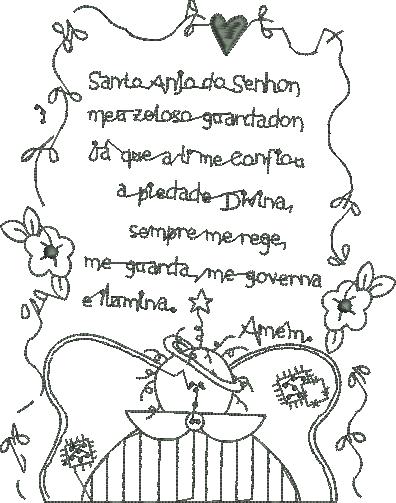 Santo Anjo do Senhor,
meu zeloso guardador,
já que a ti me confiou
a piedade Divina,
sempre me rege,
me guarda, me governa
e ilumina.
Amém.